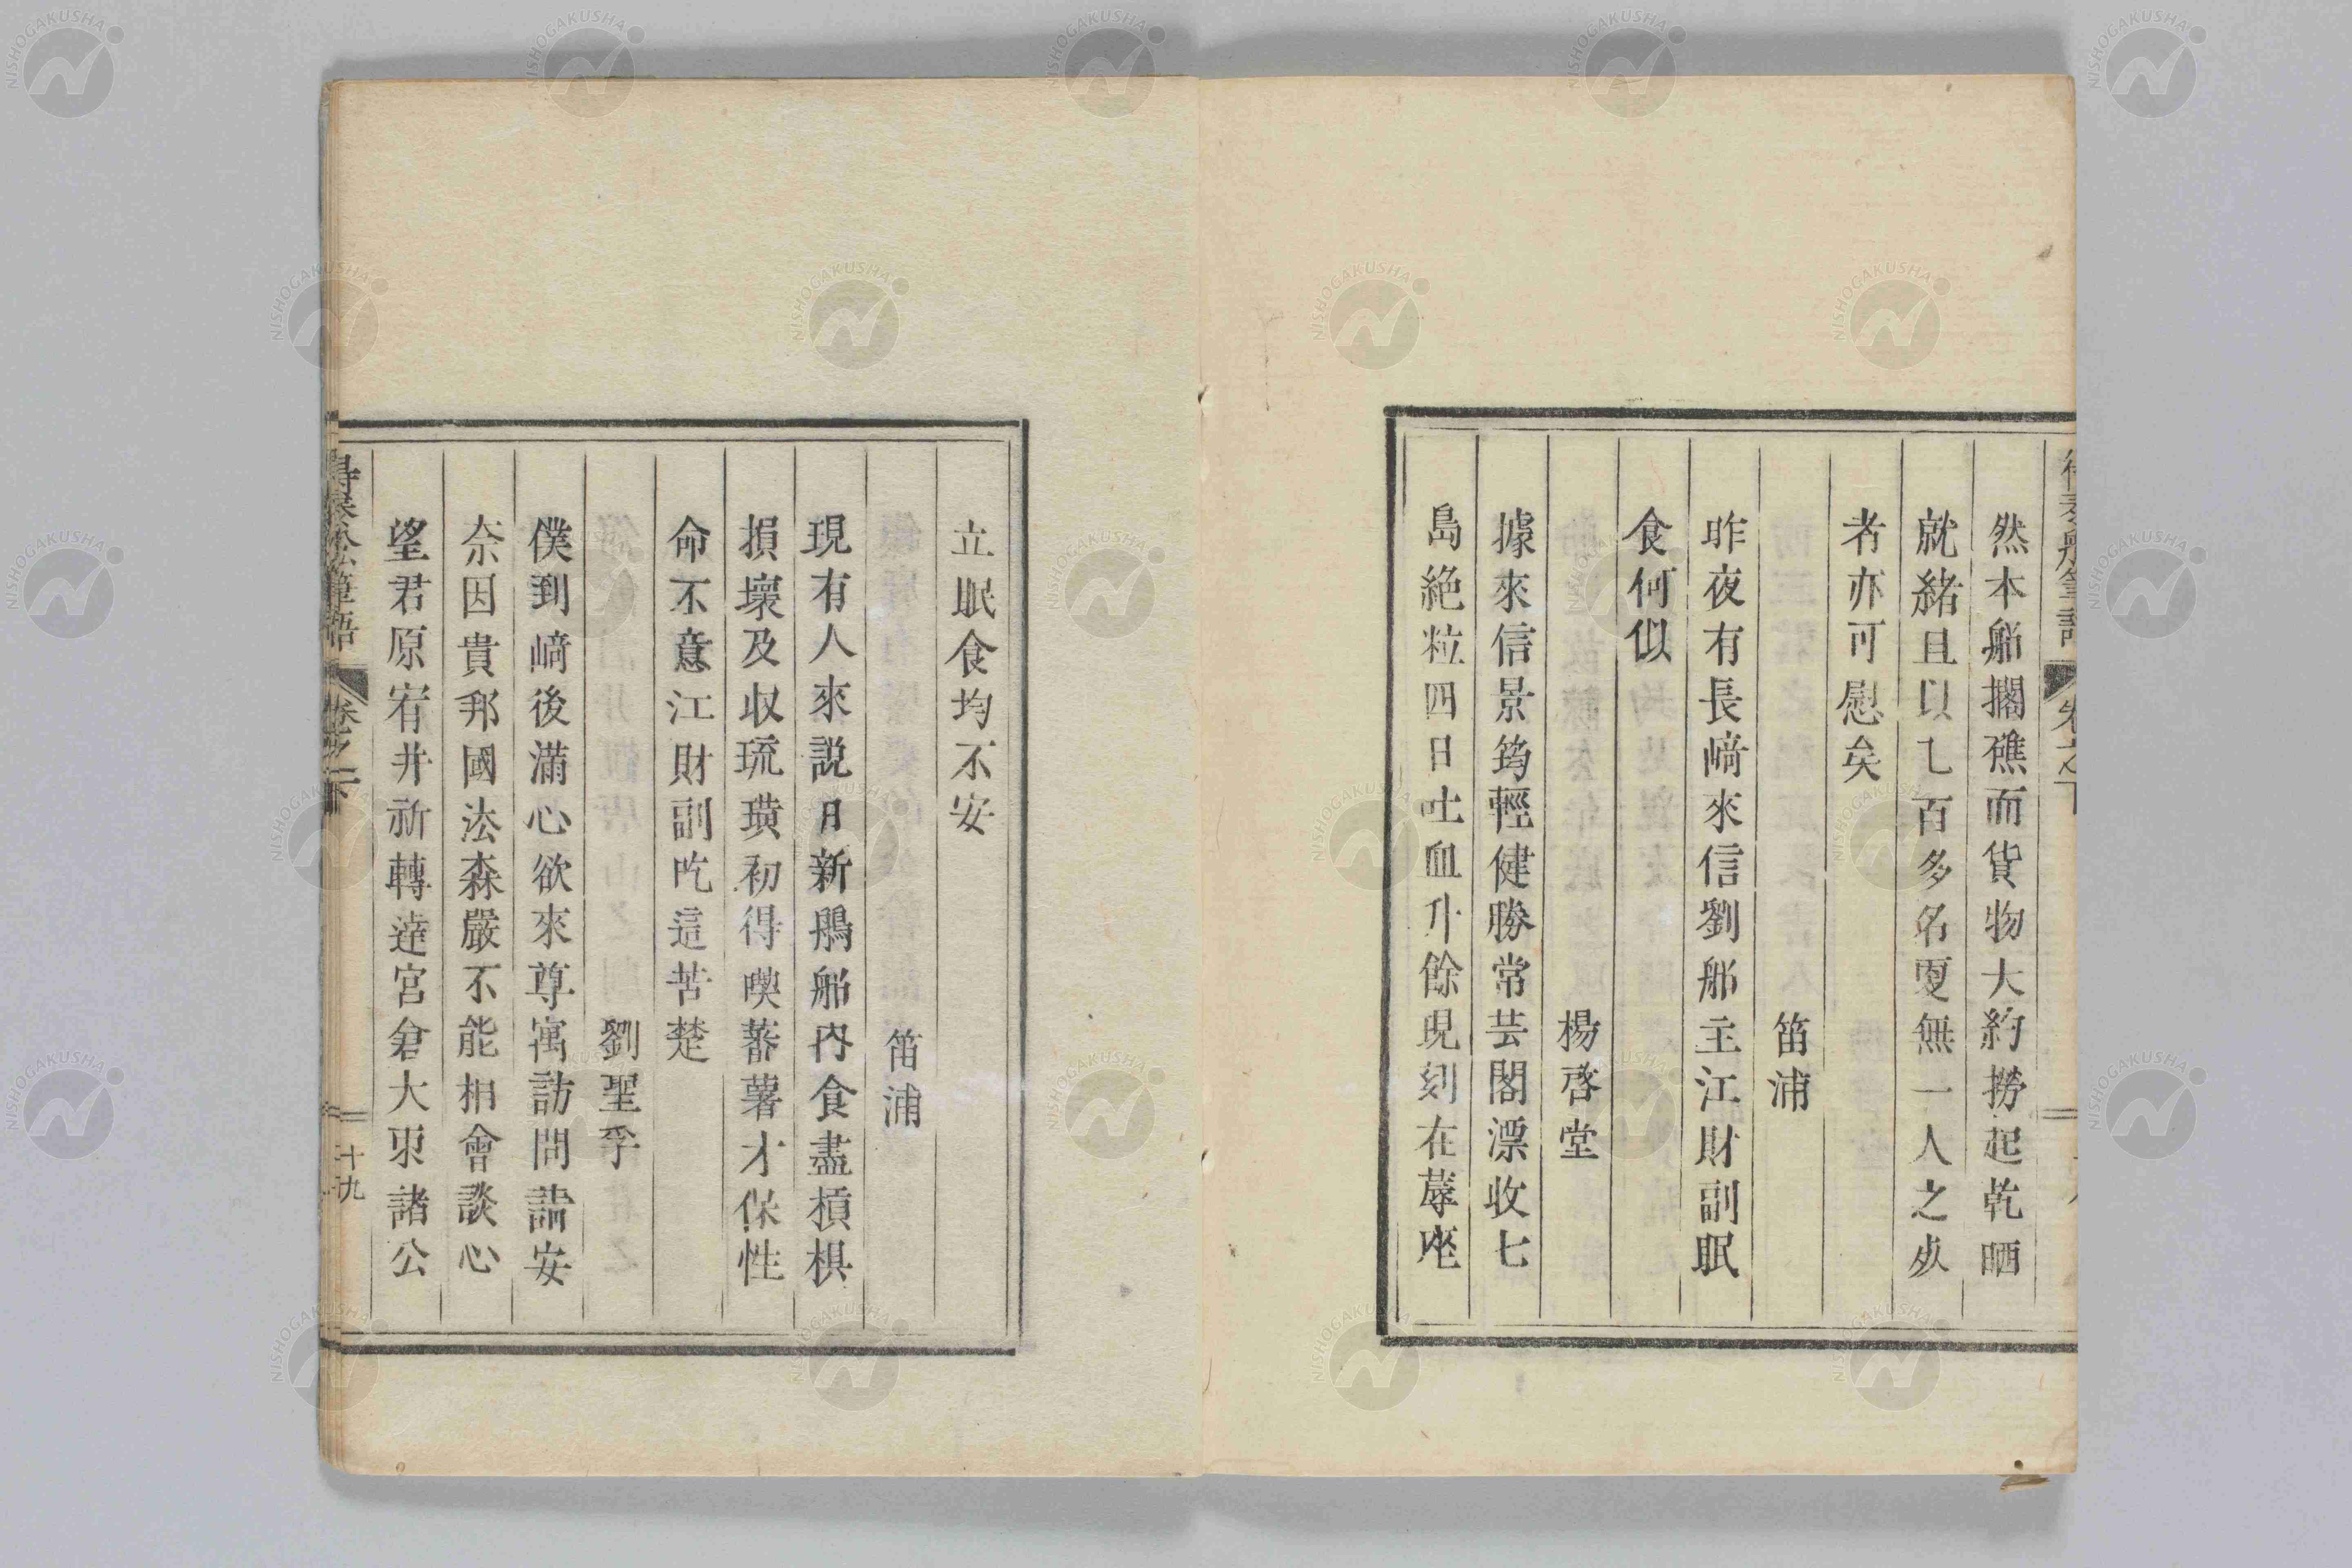 然本船擱礁而貨物大約撈起乾晒
就緒且以七百多名更無一人之失
者亦可慰矣
笛浦
昨夜有長﨑來信劉船主江財副眠
食何似
楊啓堂
據來信景筠輕健勝常芸閣漂收七
島絶粒四日吐血升餘現刻在蓐座
立眠食均不安
笛浦
現有人來説日新鵰船内食盡槓椇
損壞及収琉璜初得喫蕃薯才保性
命不意江財副吃這苦楚
劉聖孚
僕到﨑後滿心欲來尊寓訪問請安
奈因貴邦國法森嚴不能相會談心
望君原宥井祈轉達宮倉大東諸公
得泰船筆語
卷之下
十九
NISHOGAKUSHA